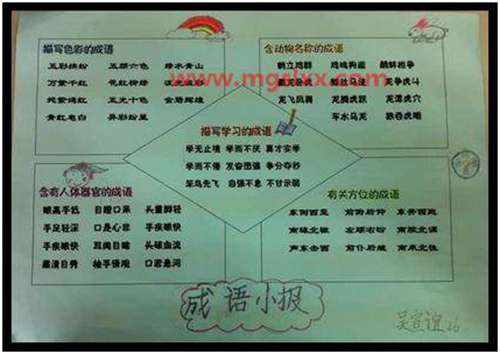 描写色彩的成语
五彩缤纷 五颜六色 绿水青山
万紫千红 花红柳绿
姹紫嫣红 五光十色 金碧辉煌
青红皂白 异彩纷呈
含动物名称的成语
鹤立鸡群 鸡鸣狗盗 鹬蚌相争
龙争虎斗
龙飞凤舞 龙腾虎跃 龙潭虎穴
车水马龙 狼吞虎咽
www.mgslxx.com
描写学习的成语
学无止境 学而不厌 真才实学
学而不倦 发奋图强 争分夺秒
笨鸟先飞 自强不息 不甘示弱
含有人体器官的成语
眼高手低 目瞪口呆 头重脚轻
手足轻深 口是心非 手疾眼快
手疾眼快 耳闻目睹 头破血流
眉清目秀 袖手旁观 口若悬河
有关方位的成语
东倒西歪 前俯后仰 东奔西跑
南辕北辙 左顾右盼 南腔北调
声东击西 前仆后继 南来北往
成语小报
吴宣谊